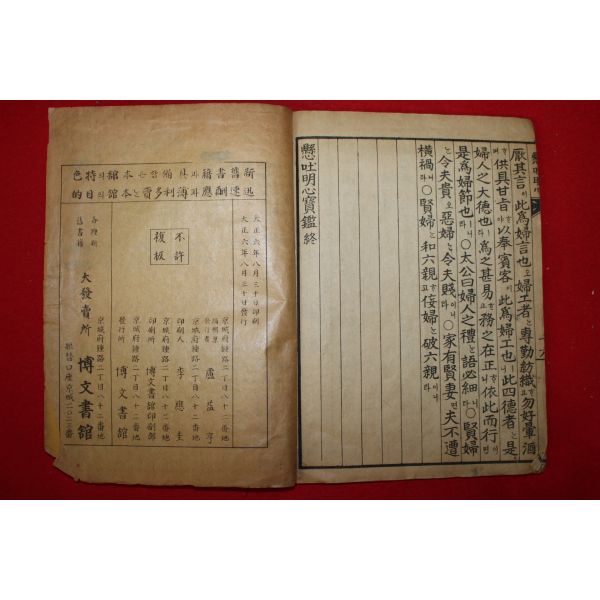 厭其言이此爲婦言也오婦工者는專勤紡織하고勿好暈酒
하며供具甘旨하야以奉賓客이此爲婦工也니此四德者는是
婦人之大德也라爲之甚易하고務之在正하니依此而行이면
是爲婦節也니라○太公曰婦人之禮는語必細니라○賢婦
는令夫貴오惡婦는令夫賤이니라○家有賢妻면夫不遭
橫禍니라○賢婦는和六親하고侫婦는破六親이니라
懸吐明心寶鑑 終
大正六年八月三十日印刷
大正六年八月三十日發行
不許複板
京城府鐘路二丁目八十二番地
發行者 盧益亨
京城府鐘路二丁目八十二番地
印刷人 李應圭
京城府鐘路二丁目八十二番地
印刷所 博文書館印刷部
京城府鐘路二丁目八十二番地
發行所 博文書館
各種新舊書籍 大發賣所
京城府鐘路二丁目八十二番地
博文書館
振替口座京城二〇二三番